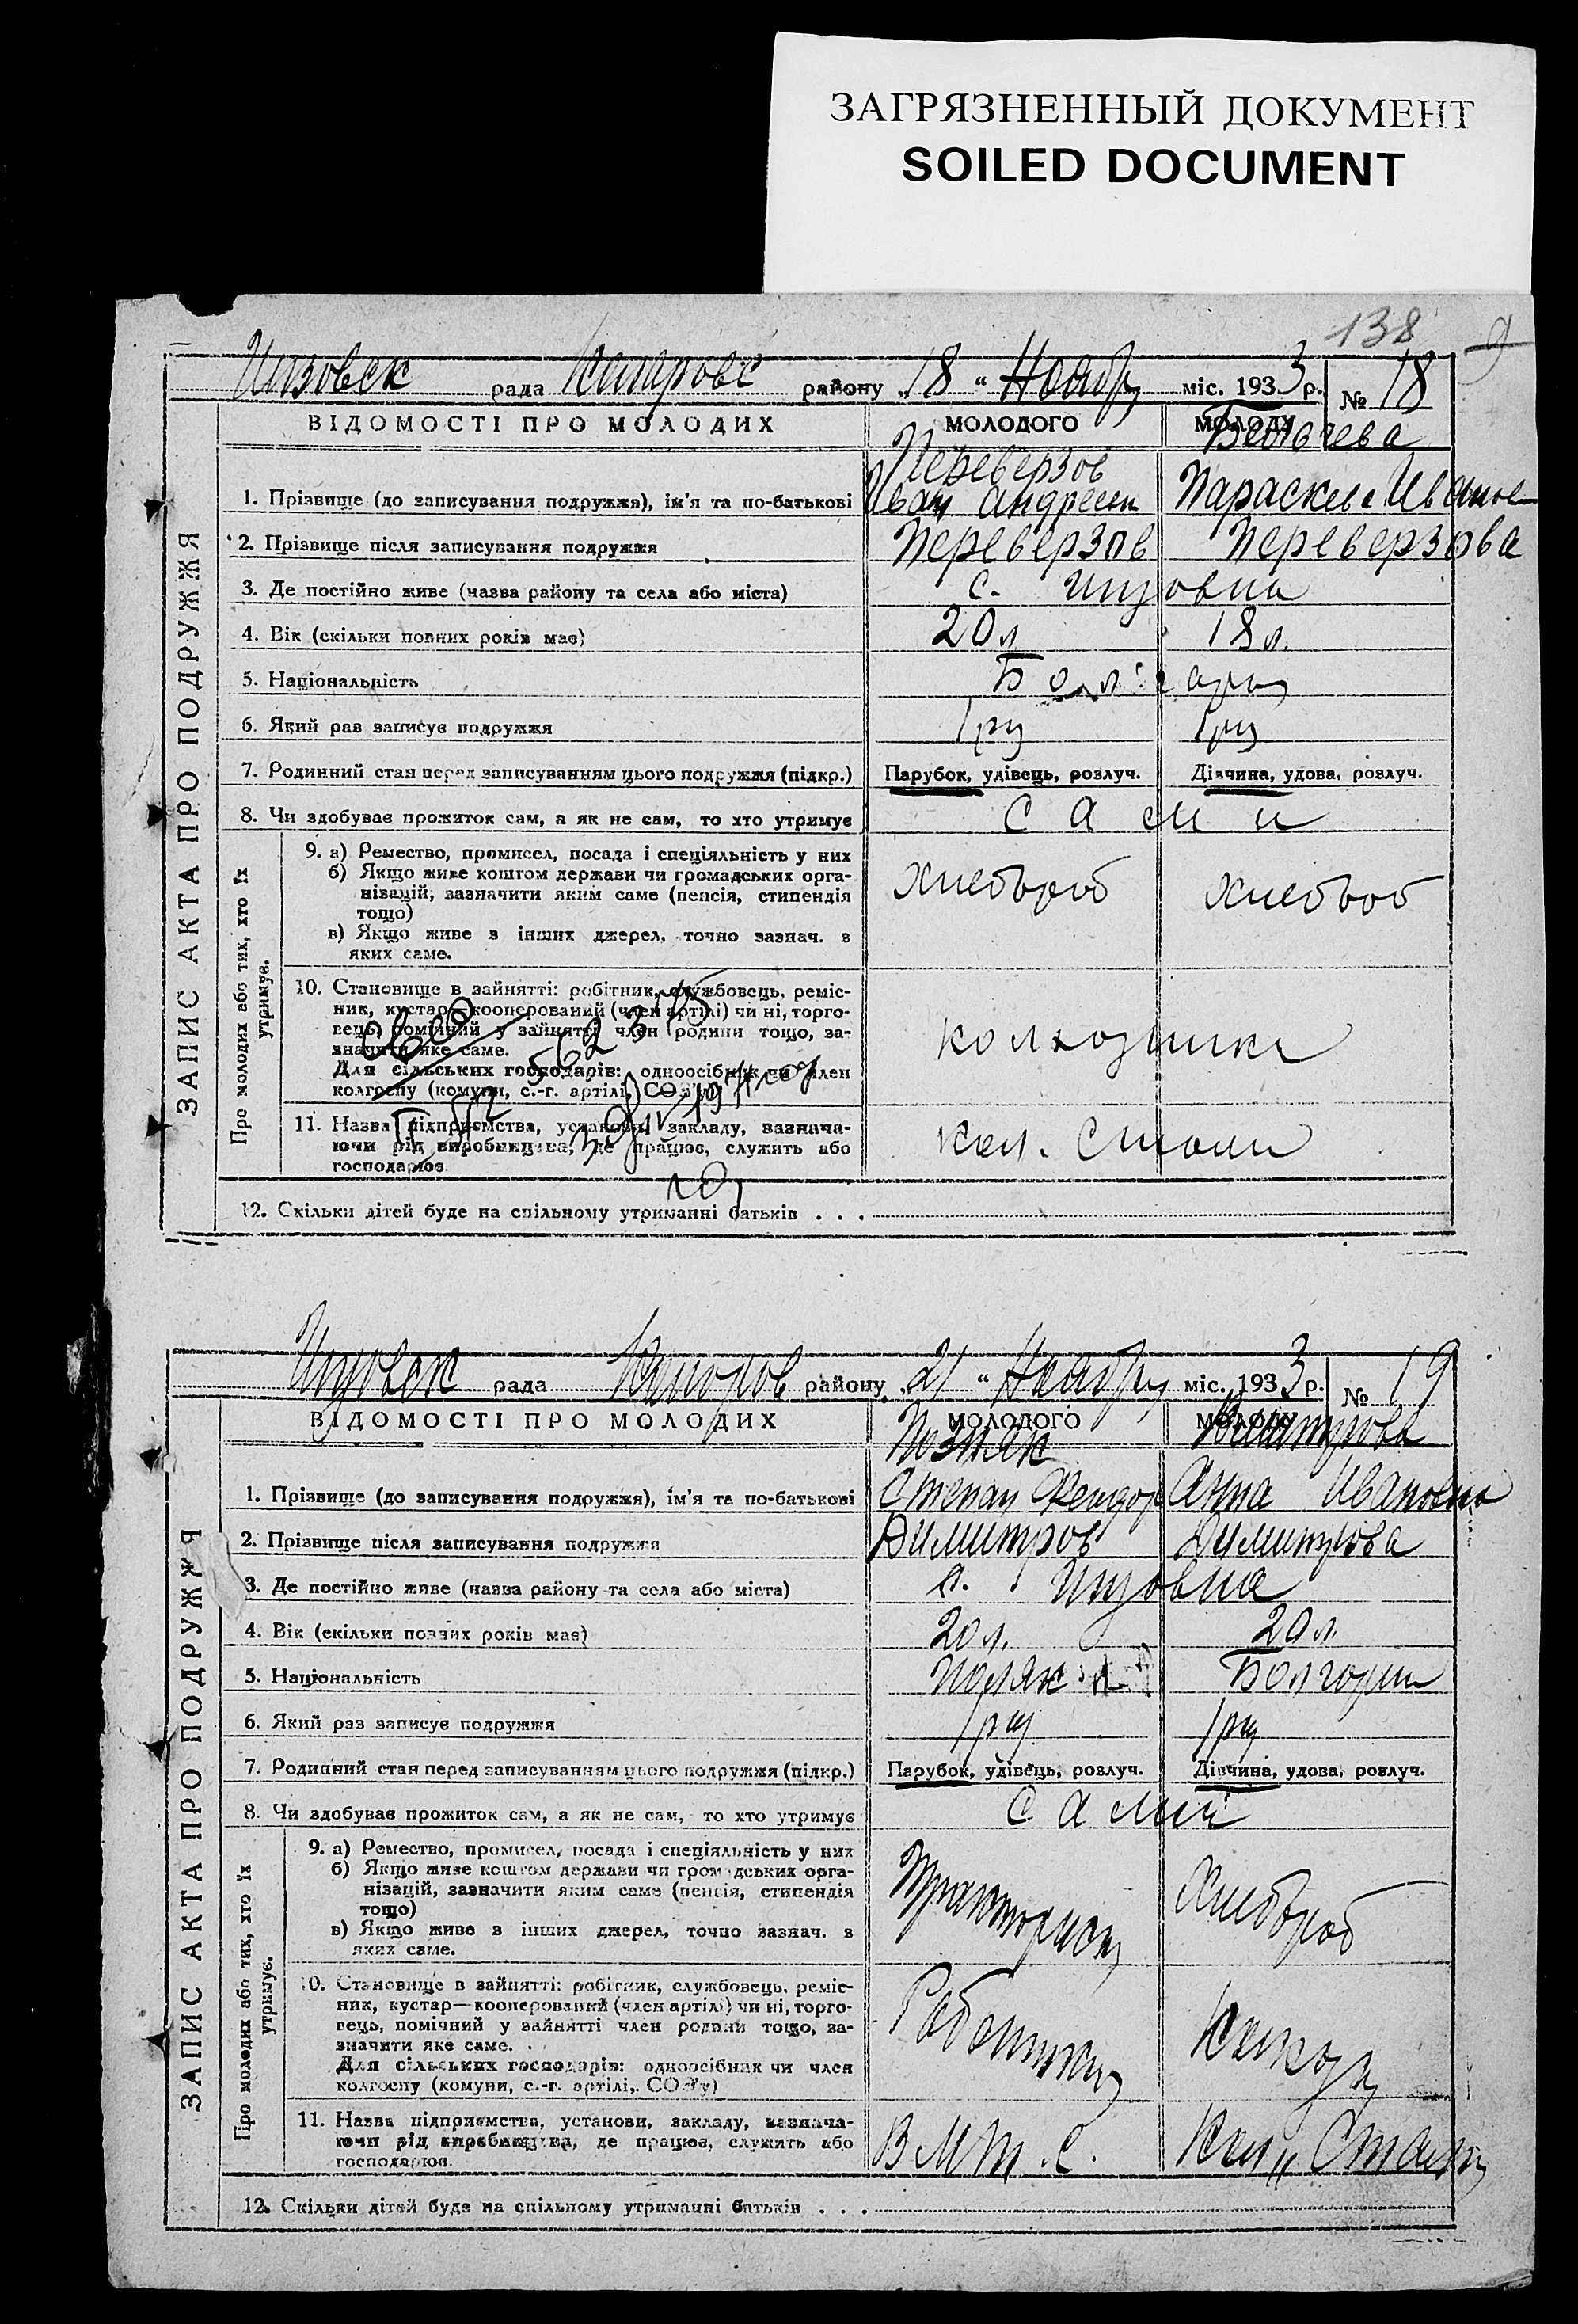 ЗАГРЯЗНЕННЫЙ ДОКУМЕНТ
SOILED DOCUMENT
138
рада району „18“ Ноябр міс. 1933 р. № 18
ВІДОМОСТІ ПРО МОЛОДИХ МОЛОДОГО МОЛОДУ
Переверзов
1. Прізвище (до записування подружжя), ім'я та по-батькові Иван Андреев Параскева Иванов
2. Прізвище після записування подружжя Переверзов Переверзова
3. Де постійно живе (назва району та села або міста) с. Инзовка
4. Вік (скільки повних років має) 20 л 18 л.
5. Національність
6. Який раз записує подружжя 1 раз 1 раз
7. Родинний стан перед записуванням цього подружжя (підкр.) Парубок, удівець, розлуч. Дівчина, удова, розлуч.
8. Чи здобуває прожиток сам, а як не сам, то хто утримує сами
ЗАПИС АКТА ПРО ПОДРУЖЖЯ
Про молодих або тих, хто їх утримує.
9. а) Ремество, промисел, посада і спеціяльність у них
б) Якщо живе коштом держави чи громадських орга-
нізацій, зазначити яким саме (пенсія, стипендія
тощо)
в) Якщо живе з інших джерел, точно зазнач. з
яких саме.
хлебороб хлебороб
10. Становище в зайнятті: робітник, службовець, реміс-
ник, кустар—кооперований (член артілі) чи ні, торго-
вець, помічний у зайнятті член родини тощо, за-
значити яке саме.
Для сільських господарів: одноосібник чи член
колгоспу (комуни, с.-г. артілі, СОЗ'у)
колхозники
11. Назва підприємства, установи, закладу, зазнача-
ючи рід виробництва, де працює, служить або
господарює.
кол.
12. Скільки дітей буде на спільному утриманні батьків . . .
рада району „21“ Ноябр міс. 1933 р. № 19
ВІДОМОСТІ ПРО МОЛОДИХ МОЛОДОГО МОЛОДУ
Позняк
1. Прізвище (до записування подружжя), ім'я та по-батькові Степан Анна Ивановна
2. Прізвище після записування подружжя Димитров Димитрова
3. Де постійно живе (назва району та села або міста) с. Инзовка
4. Вік (скільки повних років має) 20 л. 20 л.
5. Національність Поляк
6. Який раз записує подружжя 1 раз 1 раз
7. Родинний стан перед записуванням цього подружжя (підкр.) Парубок, удівець, розлуч. Дівчина, удова, розлуч.
8. Чи здобуває прожиток сам, а як не сам, то хто утримує сами
ЗАПИС АКТА ПРО ПОДРУЖЖЯ
Про молодих або тих, хто їх утримує.
9. а) Ремество, промисел, посада і спеціяльність у них
б) Якщо живе коштом держави чи громадських орга-
нізацій, зазначити яким саме (пенсія, стипендія
тощо)
в) Якщо живе з інших джерел, точно зазнач. з
яких саме.
Тракторист Хлебороб
10. Становище в зайнятті: робітник, службовець, реміс-
ник, кустар—кооперований (член артілі) чи ні, торго-
вець, помічний у зайнятті член родини тощо, за-
значити яке саме.
Для сільських господарів: одноосібник чи член
колгоспу (комуни, с.-г. артілі, СОЗ'у)
11. Назва підприємства, установи, закладу, зазнача-
ючи рід виробництва, де працює, служить або
господарює.
В М.Т.С.
12. Скільки дітей буде на спільному утриманні батьків . . .